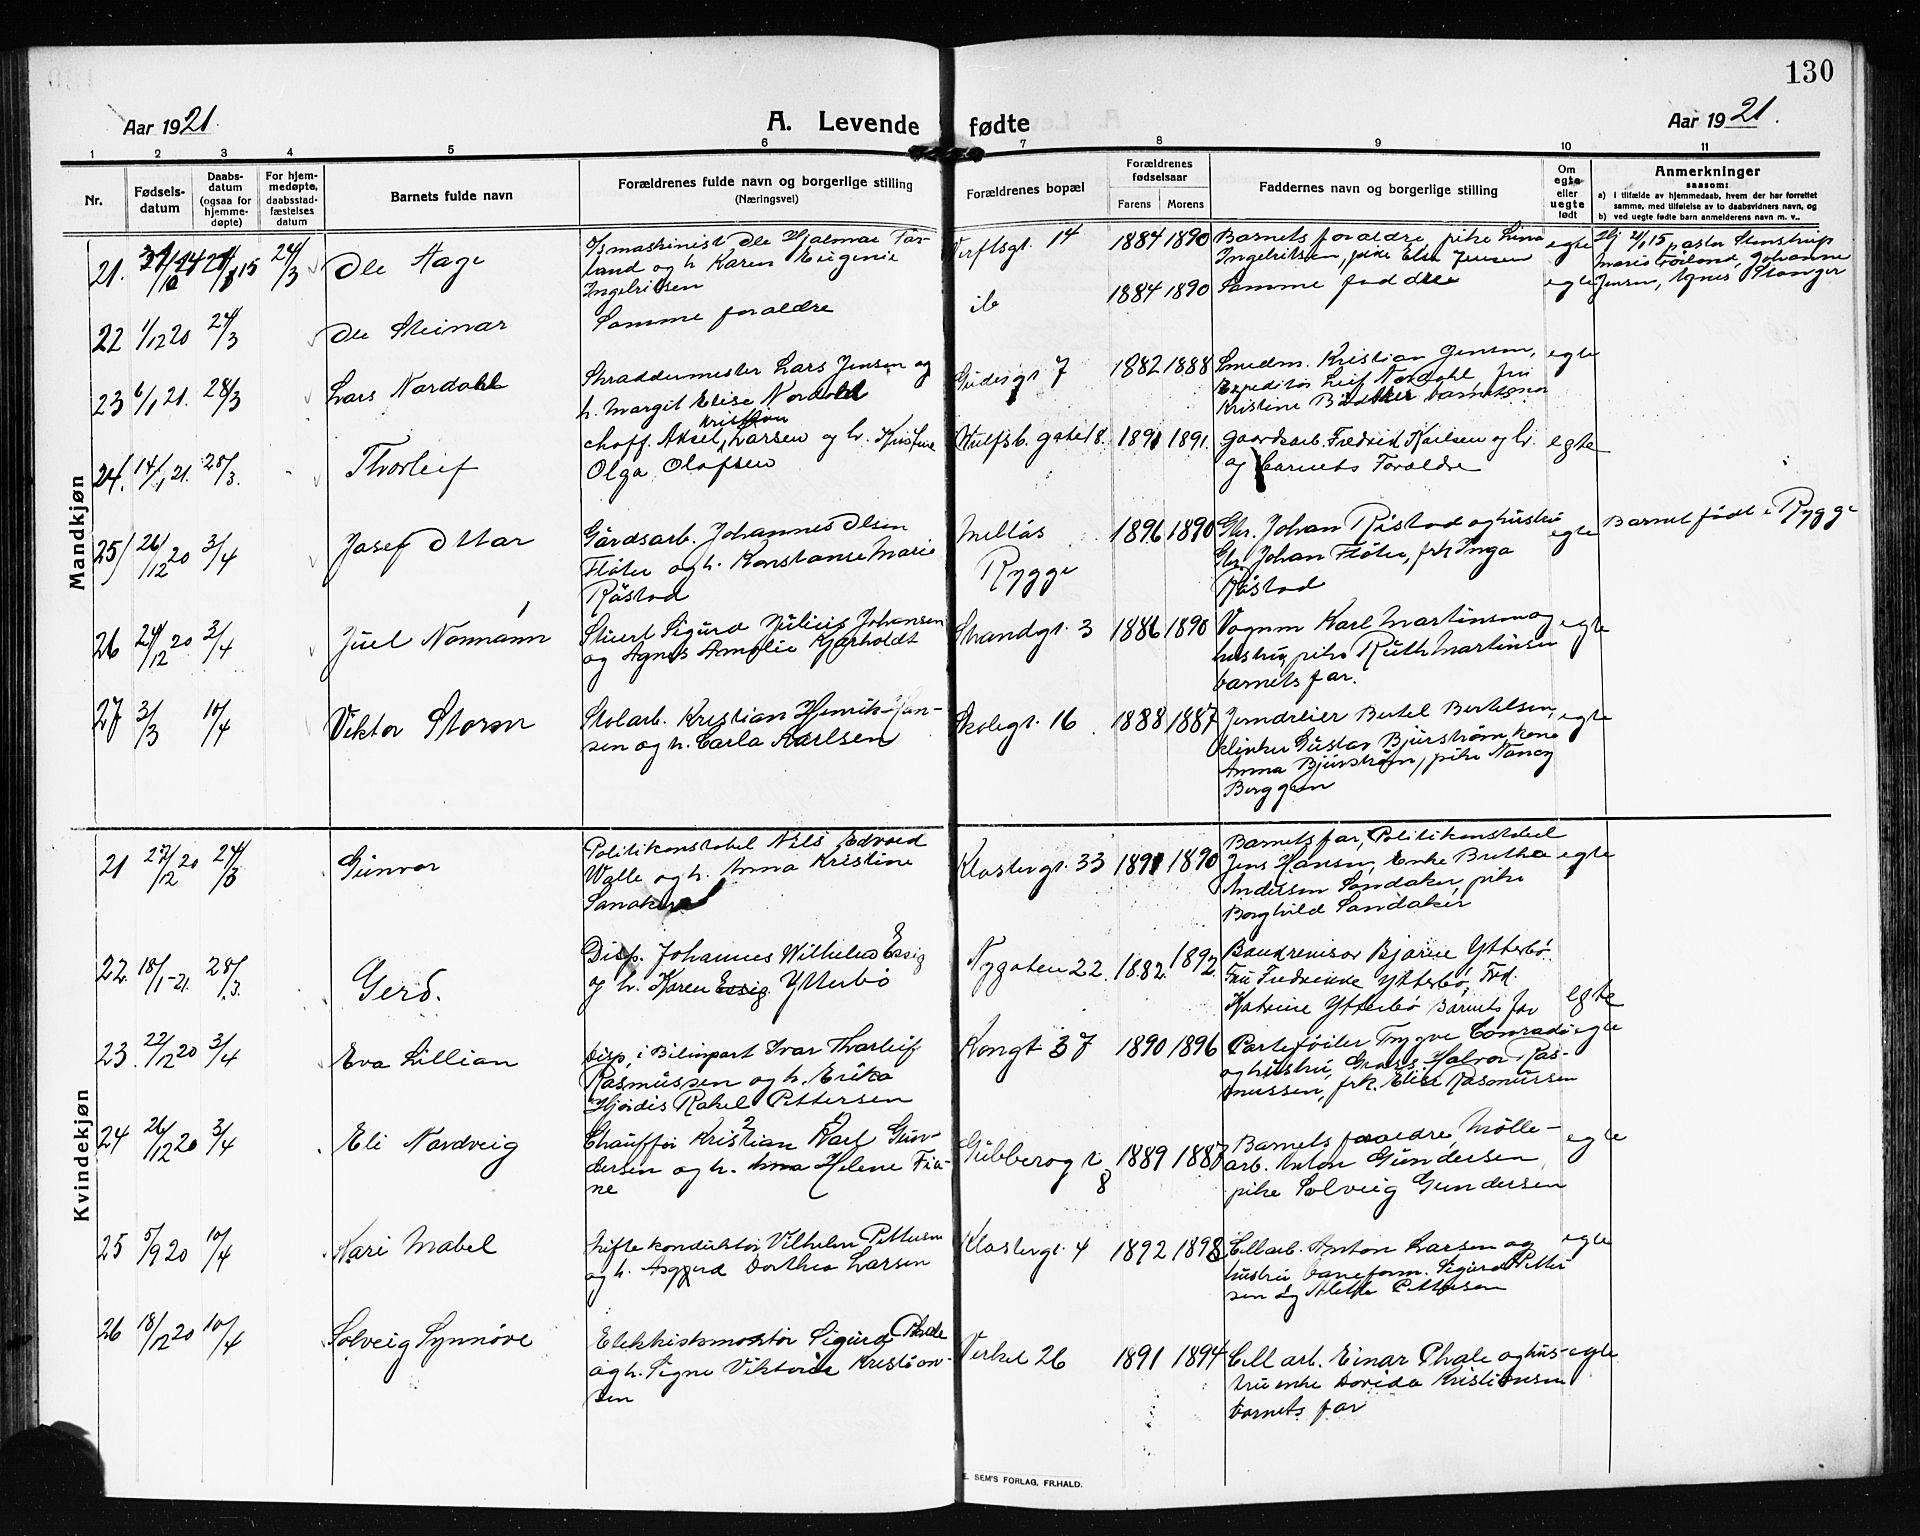 130
Aar 1921.
A. Levende fødte
Aar 1921.
1 2 3 4 5 6 7 8 9 10 11
Nr.
Fødsels-
datum
Daabs-
datum
(ogsaa for
hjemme-
døpte)
For hjem-
medøpte,
daabsstad-
fæstelses
datum
Barnets fulde navn
Forældrenes fulde navn og borgerlige stilling
(Næringsvei)
Forældrenes bopæl
Forældrenes
fødselsaar
Farens Morens
Faddernes navn og borgerlige stilling
Om
egte
eller
uegte
født
Anmerkninger
saasom:
a) i tilfælde av hjemmedaab, hvem der har forrettet
samme, med tilføielse av to daabsvidners navn, og
b) ved uegte fødte barn anmelderens navn m. v..
Mandkjøn
21. 24/3
Ole Aage
maskinist Ole Hjalmar
land og h. Karen Eugenie
Ingebritsen
Verftsgt. 14
1884 1890
Barnets foraldre, pike
Ingebritsen, pike Else Jensen
egte
pastor Stenstrup
Johanne
Jensen, Agnes Stanger
22 1/12 20 24/3
Ole Steinar
Samme foraldre
ib
1884 1890
Samme faddre
egte
23 6/1 21. 28/3
Lars Nordahl
Skraddermester Lars Jensen og
h. Margit Elise Nordahl
7
1882 1888
Smedm. Kristian Jensen,
Expeditør Leif Nordahl fru
Kristine Bødtker barnets mor
egte
24. 14/1 21. 28/3.
Thorleif
Kristian
choff. Aksel Larsen og h. Kristine
Olga Olafsen
Wulfsb. gate 18.
1891 1891.
Gaardsarb. Fredrik Karlsen og h.
og barnets Foraldre
egte
25) 26/12 20 3/4
Josef Ottar
Gårdsarb. Johannes Olsen
Fløter og h. Konstanse Marie
Råstad
Melløs
Rygge
1896 1890
Gbr. Johan Råstad og hustru
Gbr. Johan Fløter, frk Inga
Råstad
egte
Barnet født i Rygge
26 24/12 20 3/4
Juel Normann
Stuert Sigurd Julius Johansen
og Agnes Amalie Kjærholdt
Strandgt. 3
1886 1890
Vognm Karl Martinsen og
hustru, pike Ruth Martinsen
barnets far.
egte
27 3/3 10/4
Viktor Storm
Stolarb. Kristian Henrik Han-
sen og h. Carla Karlsen
Skolegt. 16
1888 1887
Jerndreier Bertel Bertelsen,
klinker Gustav Bjurstrøm, kone
Anna Bjurstrøm, pike Nancy
Berggren
egte
Kvindekjøn
21 27/12 20 24/3
Gunvor
Politikonstabel Nils Edvard
Walle og h. Anna Kristine
Klostergt. 33
1891 1890
Barnets far, Politikonstabel
Jens Hansen, Enke Brethe
Andersen Sandaker, pike
Borghild Sandaker,
egte
22. 18/1-21. 28/3.
Gerd.
Disp. Johannes Wilhelm Essig
og h. Karen Essig Ytterbø
Nygaten 22.
1882. 1892.
Bankrevisor Bjarne Ytterbø
Fru Fredrikke Ytterbø, Frk.
Katrine Ytterbø Barnets far
egte
23. 22/12 20 3/4
Eva Lillian
Disp. i Bilimport Ivar Thorleif
Rasmussen og h. Erika
Hjørdis Rakel Pettersen
Kongt 37
1890 1896
Parteføiler Trygve Conradi
og hustru, Halvor Ras-
mussen, frk. Elisa Rasmussen
egte
24 26/12 20 3/4
Eli Nordveig
Chauffør Kristian Karl Gun-
dersen og h. Anna Helene Fia-
ne
8
1889 1887
Barnets foraldre, Mølle-
arb. Anton Gundersen,
pike Solveig Gundersen
egte
25 5/9 20 10/4
Kari Mabel
konduktør Vilhelm Pettersen
og h. Dorthea Larsen
Klostergt. 4
1892 1893
Cellarb. Anton Larsen og
hustru baneform. Sigurd Petter
sen og Alette Pettersen
egte
26 18/12 20 10/4
Solveig Synnøve
Elektriskmontør Sigurd Phale
og h. Signe Viktoria Kristian-
sen
Verket 26
1891 1894
Cell arb. Einar Phale og hus-
tru enke Dorida Kristiansen
barnets far
egte
E. SEM'S FORLAG, FR.HALD.